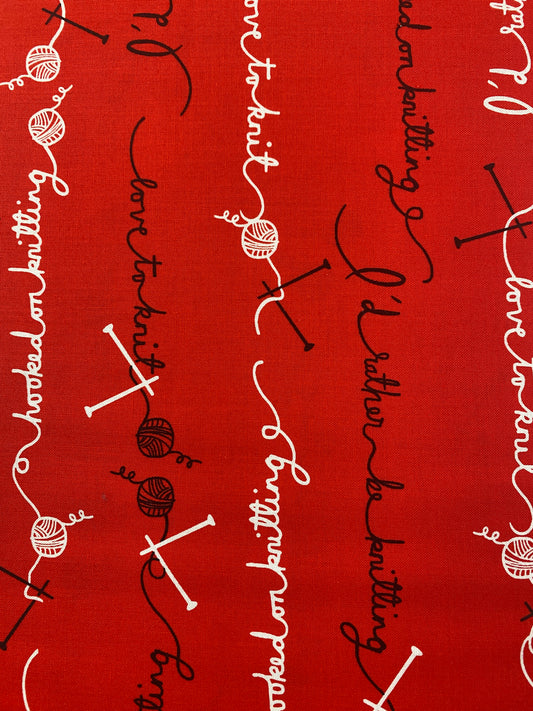 hooked on knitting
I'd
love to knit
ove to knit
ooked on knitting
ked on knitting
I'd rather be knitting
I'd rat
love to knit